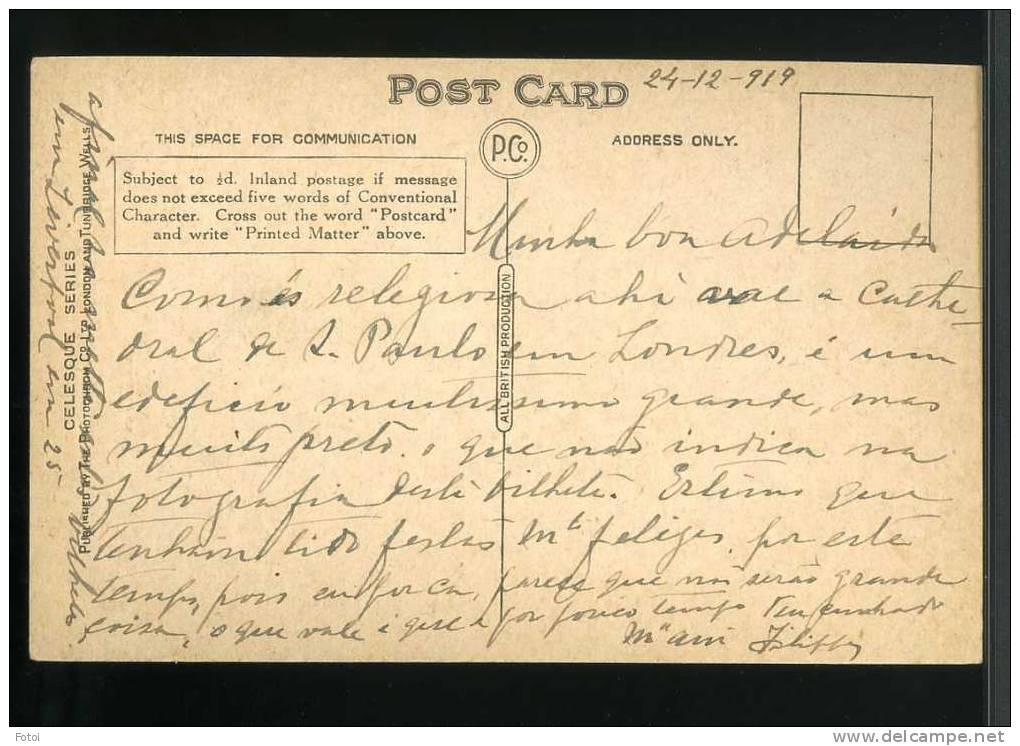 POST CARD
24-12-919
THIS SPACE FOR COMMUNICATION
P.Co.
ADDRESS ONLY.
Subject to ½d. Inland postage if message
does not exceed five words of Conventional
Character. Cross out the word "Postcard"
and write "Printed Matter" above.
Minha boa Adelaide
Como és relegiosa ahi vae a Cathe-
dral de S. Paulo em Londres, é um
edeficio muitissimo grande, mas
muito preto. o que não indica na
fotografia deste bilhete. Estimo que
tenham tido festas Mto felizes, por este
tempo, pois cá, parece que não serão grande
coisa, o que vale é que é por pouco tempo Teu cunhado
Mto am Filippe
ALL BRITISH PRODUCTION
CELESQUE SERIES
PUBLISHED BY THE PHOTOCHROM CO. LTD. LONDON AND TUNBRIDGE WELLS.
bilhete
em Liverpool em 25
Fotoi
delcampe.net